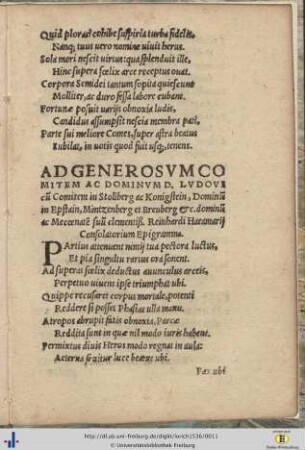 Quid ploras? cohibe suspiria turba fidelis,
Nanq; tuus uero nomine uiuit herus.
Sola mori nescit uirtus: qua splenduit ille,
Hinc supera fœlix arce receptus ouat.
Corpora Semidei tantum sopita quiescunt
Molliter, ac duro fessa labore cubant.
Fortunæ posuit uarijs obnoxia ludis,
Candidus assumpsit nescia membra pati,
Parte sui meliore Comes, super astra beatus
Iubilat, in uotis quod fuit usq;, tenens.
AD GENEROSVM CO
MITEM AC DOMINVM D. LVDOVI
cū Comitem in Stolberg ac Konigstein, Dominū
in Epstain, Mintzenberg et Breuberg &c. dominū
ac Mecœnatē suū clementiss. Reinhardi Hadamarij
Consolatorium Epigramma.
PArtius attenuent nemij tua pectora luctus,
Et pia singultu rarius ora sonent.
Ad superas fœlix deductus auunculus arces,
Perpetuo uiuens ipse triumphat ubi.
Quippe recusaret corpus mortale, potenti
Reddere si posses Phasias ulla manu.
Atropos abrupit fatis obnoxia, Parcæ
Reddita sunt in quæ nil modo iuris habent.
Permixtus diuis Heros modo regnat in aula:
Aeterna fruitur luce beatus ubi.
Pax ubi
http://dl.ub.uni-freiburg.de/diglit/lorich1536/0011
© Universitätsbibliothek Freiburg